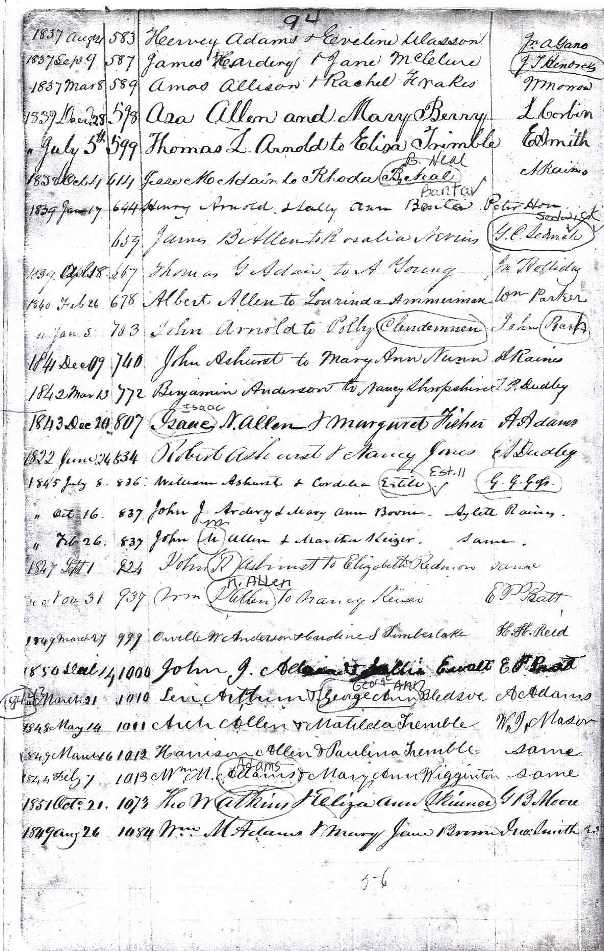 94
1837 August 583 Hervey Adams & Eveline Wasson Jn. A Gano
1837 Sep 9 587 James Hardery & Jane McClure J. T. Hendrick
1837 Mar 8 589 Amos Allison & Rachel Frakes W Morrow
1839 Dec 28 598 Asa Allen and Mary Berry L Corbin
" July 5th 599 Thomas L Arnold to Eliza Trimble E Smith
B. Neal
1838 Oct 4 614 Jesse McAdair to Rhoda B. Neal A Rains
Banta
1839 Jan 17 644 Henry Arnold & Sally Ann Banta Peter Hon
659 James B Allen to Rosalia Nevins G. C.
1839 Apl 18 667 Thomas G Adair to A Young Jn Holliday
1840 Feb 26 678 Albert Allen to Lourinda Ammerman Wm Parker
" Jan 8 703 John Arnold to Polly Clendennen John
1841 Dec 09 740 John Ashurst to Mary Ann Nunn A Raines
1842 Mar 13 772 Benjamin Anderson to Nancy Shropshire T. P. Dudley
Isaac
1843 Dec 20 807 Isaac N. Allen & Margaret Fisher A Adams
1822 June 24 834 Robert Ashurst & Nancy Jones Dudley
Estill
1845 July 8. 836. William Ashurst & Cordelia Estill G. G. Goss.
" Oct 16. 837 John J. Ardery & Mary Ann Boone. Aylett Raines.
m
" Feb 26. 837 John Allen & Martha Keizer. same.
1847 Sept 1 924 John R Ashurst to Elizabeth Redmon same
N. Allen
Nov 31 937 Wm Allen to Nancy E P Pratt
1849 March 27 999 Orville W Anderson & Caroline S Timberlake H. H. Reid
1850 14 1000 John J. & Sallie Ewalt E P Pratt
George Ann
March 21 1010 Len Arthur & George Ann Bledsoe A C Adams
1848 May 14 1011 Arch Allen & Matilda Tremble W. J. Mason
1849 March 6 1012 Harrison Allen & Paulina Tremble same
Adams
1844 July 7 1013 Wm M. Adams & Mary Ann Wigginton same
1851 Oct. 21. 1073 Tho W Atkins & Eliza Ann Skinner G B Moore
1849 Aug 26 1084 Wm M Adams & Mary Jane Brown Jno. Smith
56